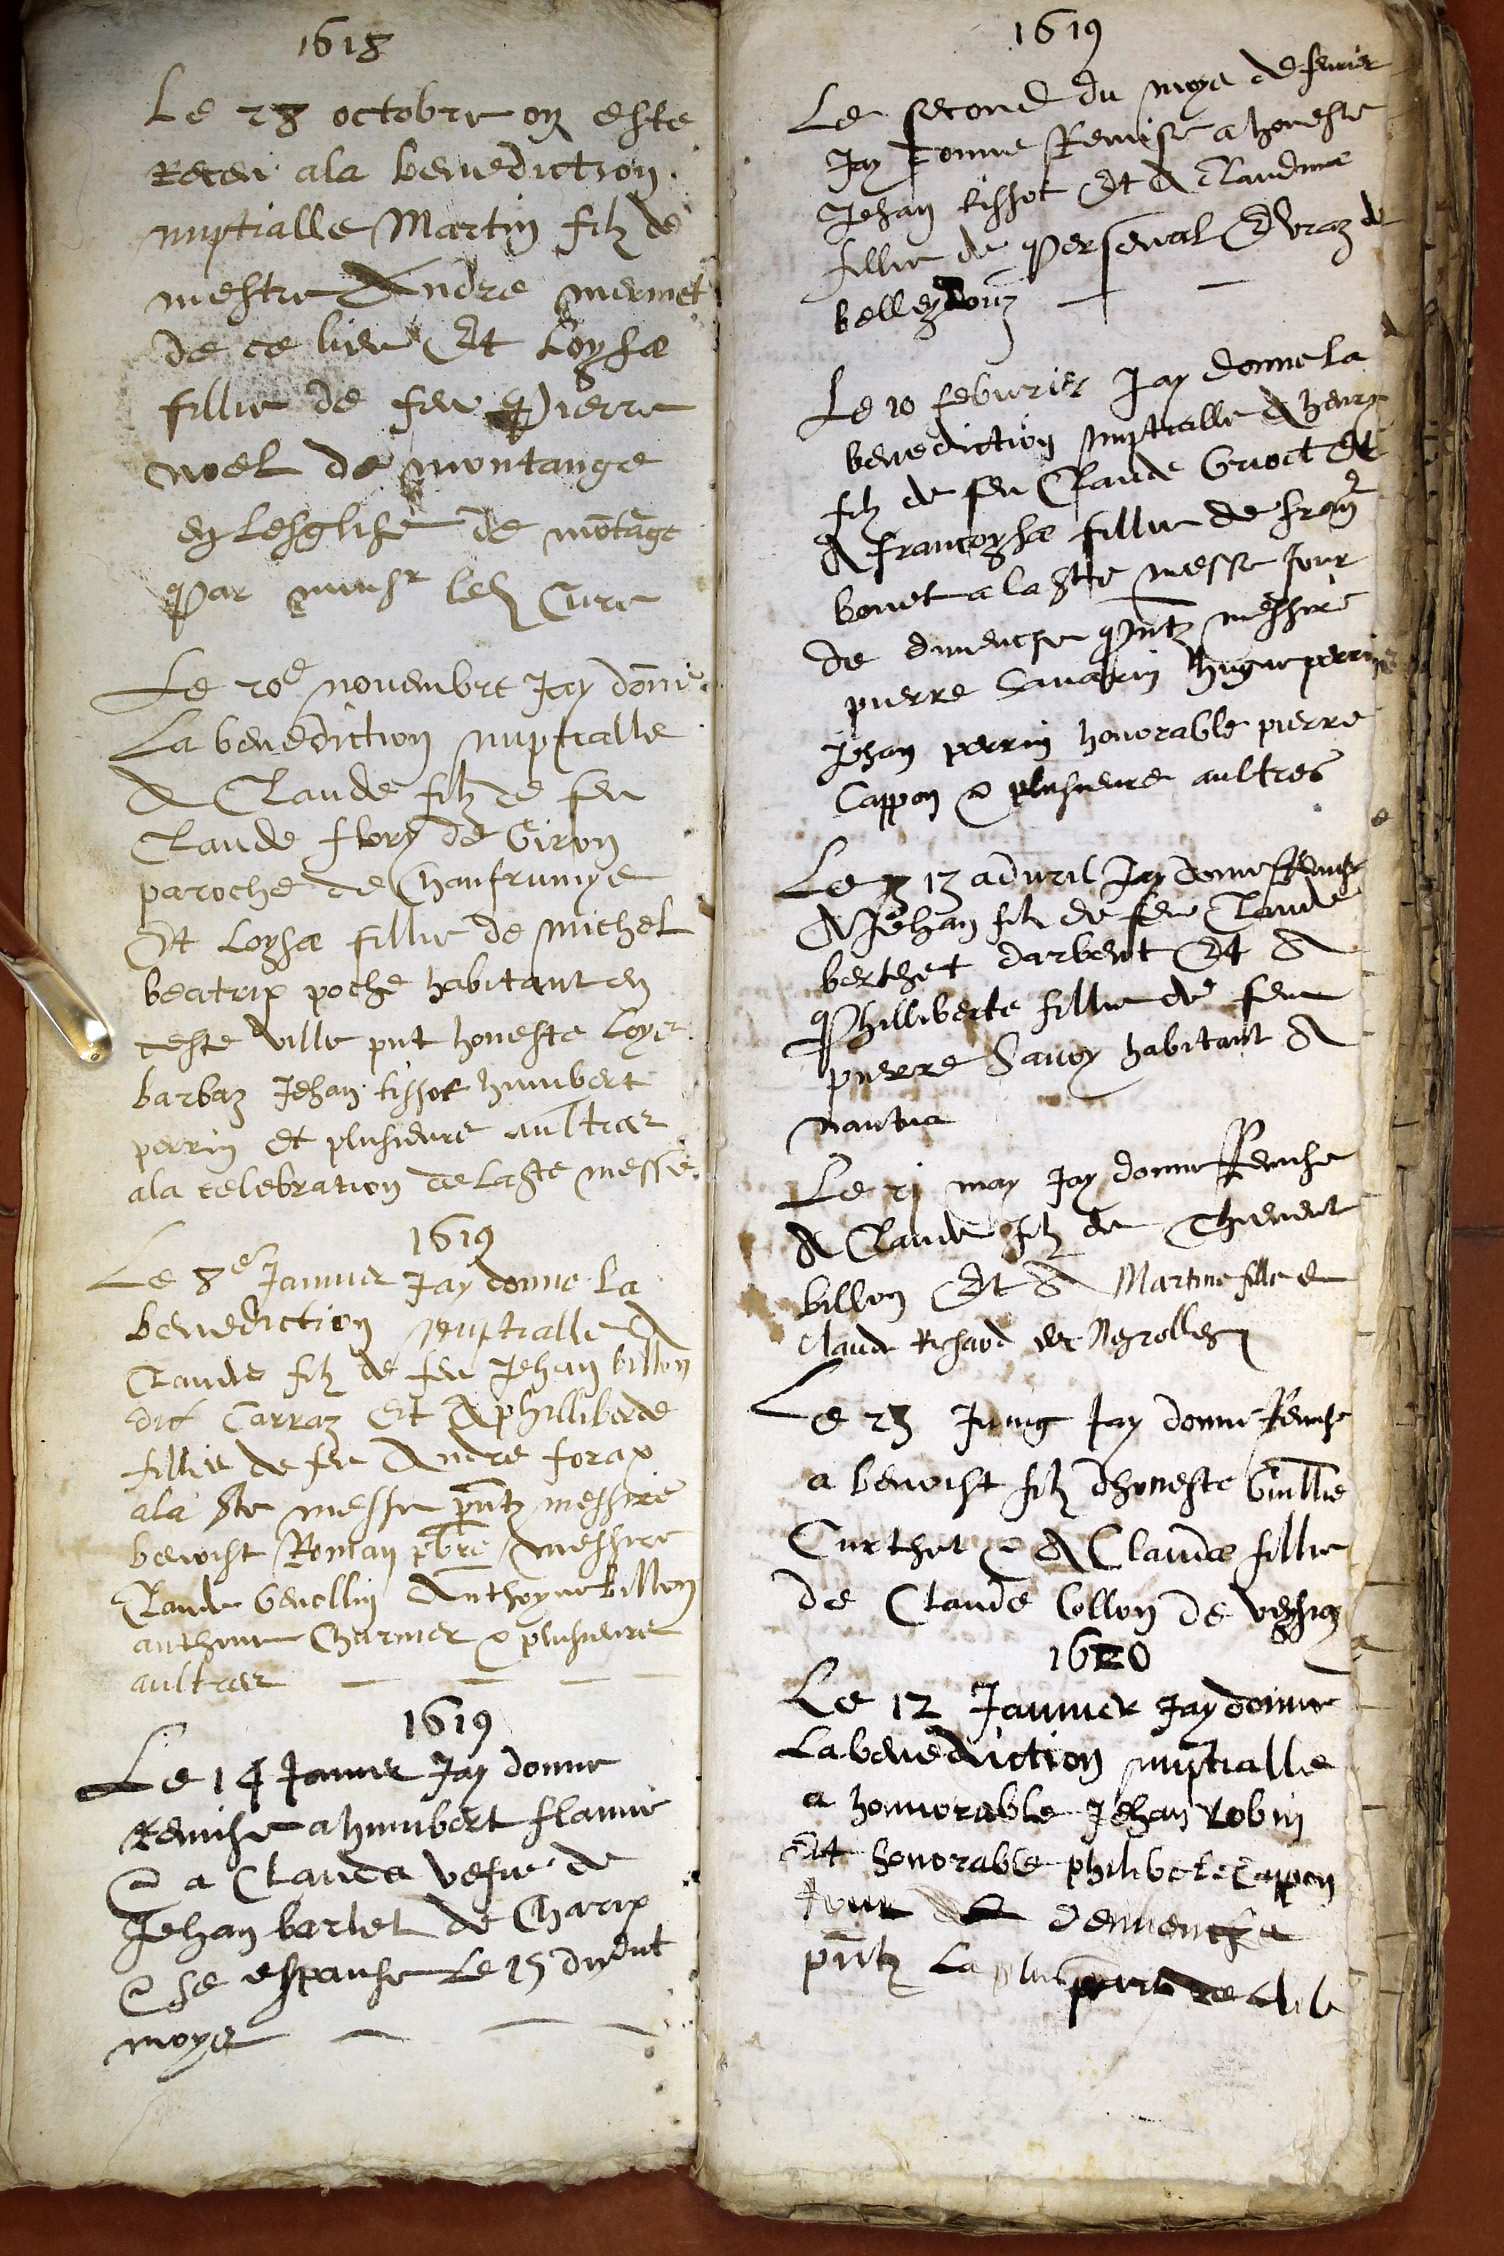 1618
Le 23 octobre on este
Receu ala benediction
nuptialle Martin filz de
mestre Andre mermet
de ce lieu Et Loysa
fillie de feu Pierre
noel de montange
en lesglise de mōtāge
Par monsr led Cure
Le 20e novembre Jay donne
La benediction nuptialle
A Claude filz de feu
Claude flory de Giron
paroche de Chanfrumye
Et Loysa fillie de michel
beatrix poche habitant en
ceste ville pnt honeste Loys
barbaz Jehan tissot humbert
perrin et plusieurs aultres
ala celebration de la ste messe
1619
Le 8e Janvier Jay donne la
benediction nuptialle A
Claude filz de feu Jehan billon
dit Carraz Et A philliberde
fillie de feu Andre forax
ala ste messe pntz messire
benoist Roman pbre messire
Claude Genollin Anthoyne billon
anthoine Charmer & plusieurs
aultres
1619
Le 14 Janvier Jay donne
remise a humbert flamie
& a Clauda vefve de
Jehan barlet de Charix
& se espause Le 15 dudit
moys
1619
Le second du moys de fevrier
Jay donne Remise a honeste
Jehan tissot Et A Claudina
fillie de Perseval Evraz de
belleydoux
Le 10 febvrier Jay donne la
benediction nuptialle A henry
filz de feu Claude Gruoct Et
A francoysa fillie de fran
bonet a la ste messe Jour
de dimenche pntz messire
pierre Savarin hugue perrin
Jehan perrin honorable pierre
Cappon & plusieurs aultres
Le 13 advril Jay donne Remise
A Jehan filz de feu Claude
berthet darbent Et A
Philliberte fillie de feu
pierre Savoy habitant A
nantua
Le ij may Jay donne Remise
A Claude filz de Thievent
billon Et A Martine fille de
Claude Richard de Neyrolles
Le 23 Juing Jay donne Remise
a benoist filz dhoneste Guillie
Curthet & A Clauda fillie
de Claude Collon de veysia
1620
Le 12 Janvier Jay donne
La benediction nuptialle
a honnorable Jehan Robin
Et honorable philiberte Cappon
Jour de demenche
pntz La plus